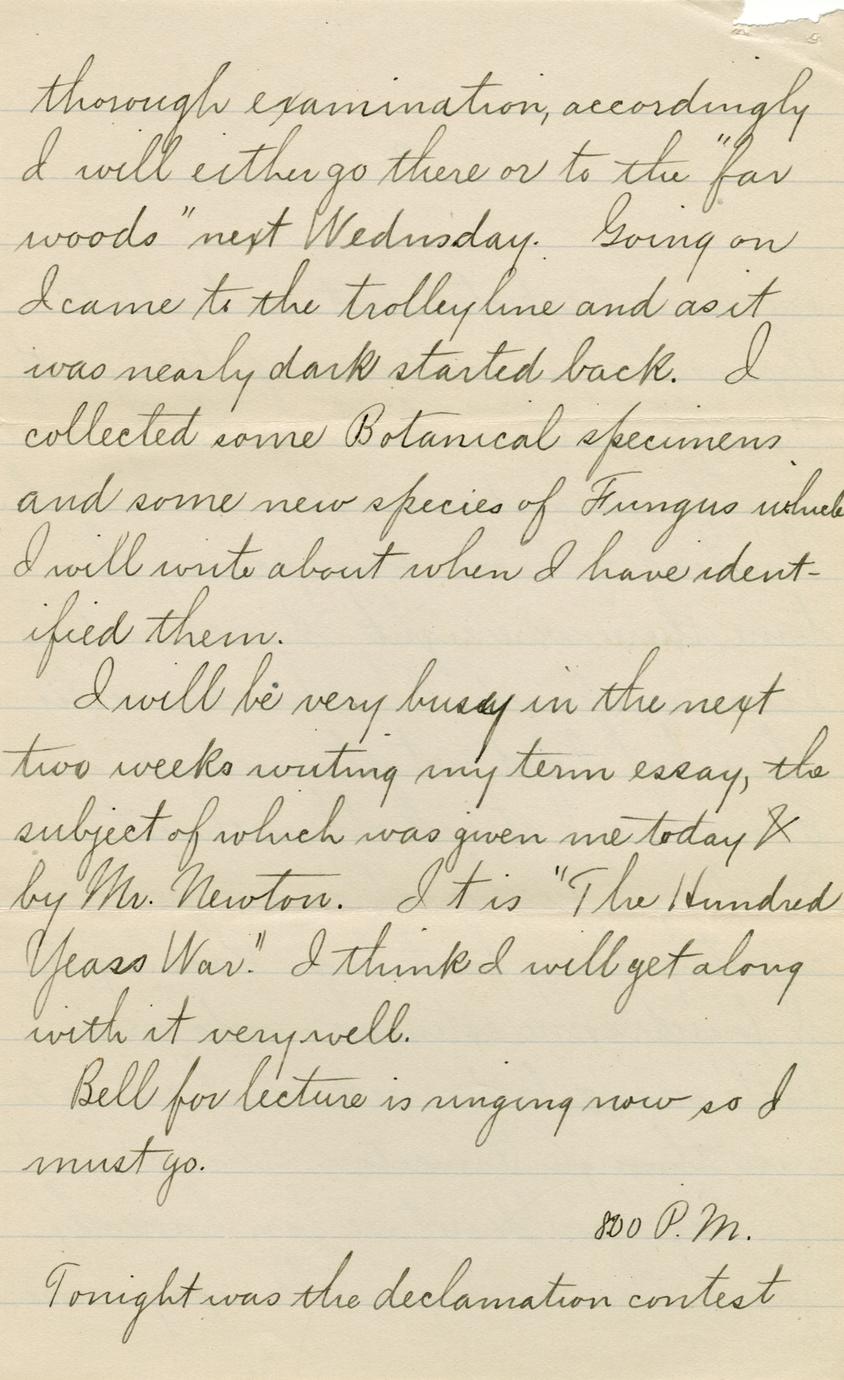 thorough examination, accordingly
I will either go there or to the "far
woods" next Wednsday. Going on
I came to the trolley line and as it
was nearly dark started back. I
collected some Botanical specimens
and some new species of Fungus which
I will write about when I have ident-
ified them.
I will be very busy in the next
two weeks writing my term essay, the
subject of which was given me today &
by Mr. Newton. It is "The Hundred
Years War." I think I will get along
with it very well.
Bell for lecture is ringing now so I
must go.
P.M.
Tonight was the declamation contest